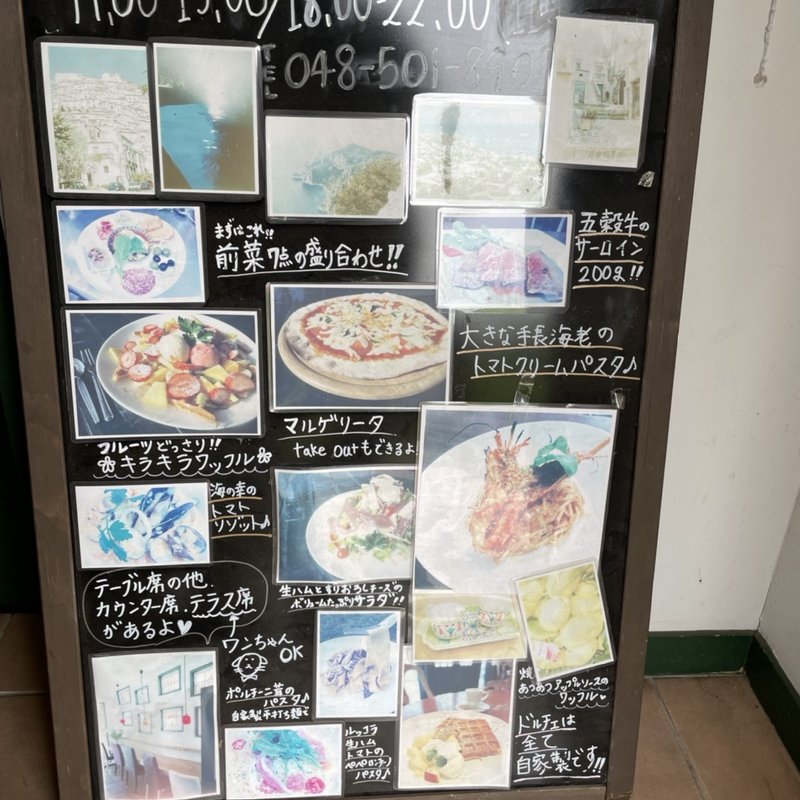 11:00-15:00/18:00-22:00
TEL 048-501-8901
まずはこれ!!
前菜7点の盛り合わせ!!
五穀牛の
サーロイン
200g!!
大きな手長海老の
トマトクリームパスタ♪
マルゲリータ
take outもできるよ
フルーツどっさり!!
キラキラワッフル
海の幸の
トマト
リゾット♪
生ハムとすりおろしチーズの
ボリュームたっぷりサラダ!!
テーブル席の他、
カウンター席、テラス席
があるよ♥
ワンちゃん
OK
ポルチーニ茸の
パスタ♪
自家製手打ち麺で
ルッコラ
生ハム
トマトの
ペペロンチーノ
パスタ♪
あつあつアップルソースの
ワッフル
ドルチェは
全て
自家製です!!